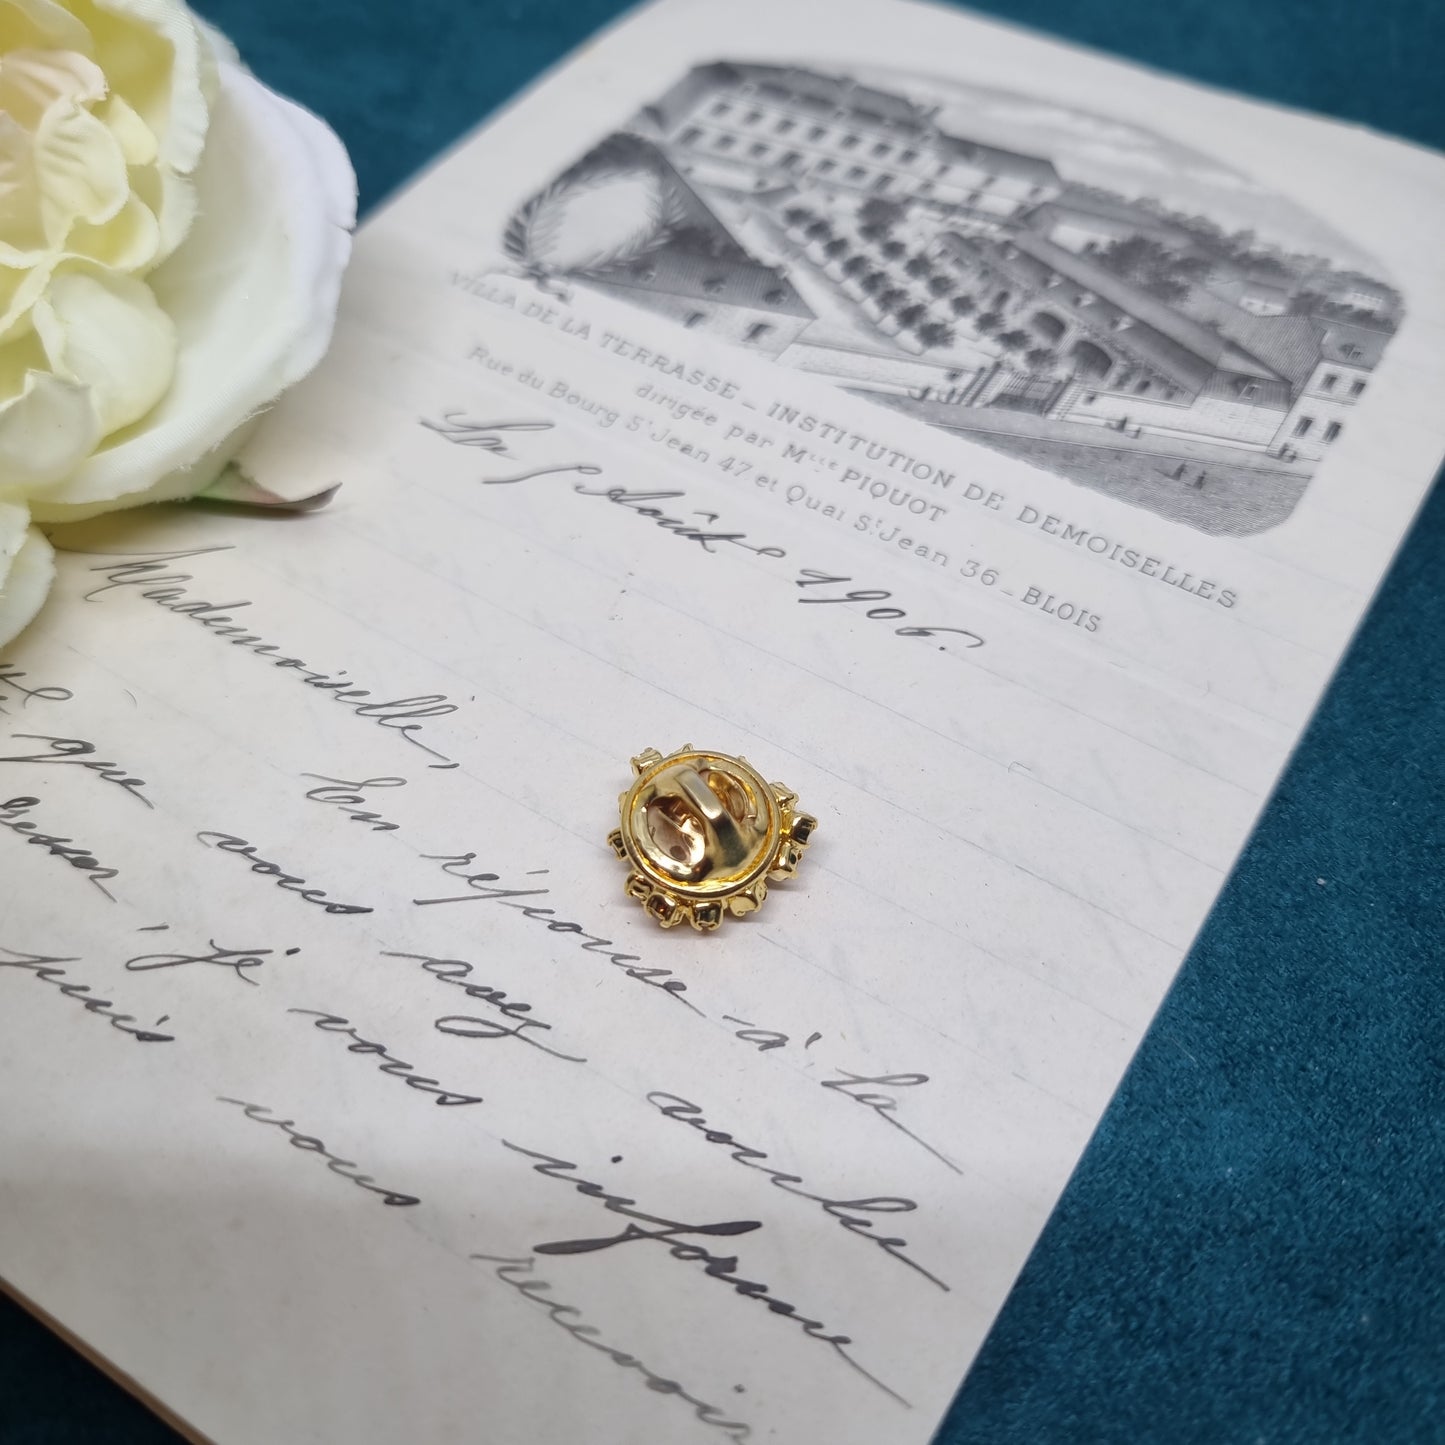 VILLA DE LA TERRASSE _ INSTITUTION DE DEMOISELLES
dirigée par Mlle PIQUOT
Rue du Bourg St Jean 47 et Quai St Jean 36 _ BLOIS
Le 5 Août 1906.
Mademoiselle,
En réponse à la
que vous avez voulu
, je vous informe
puis vous recevoir